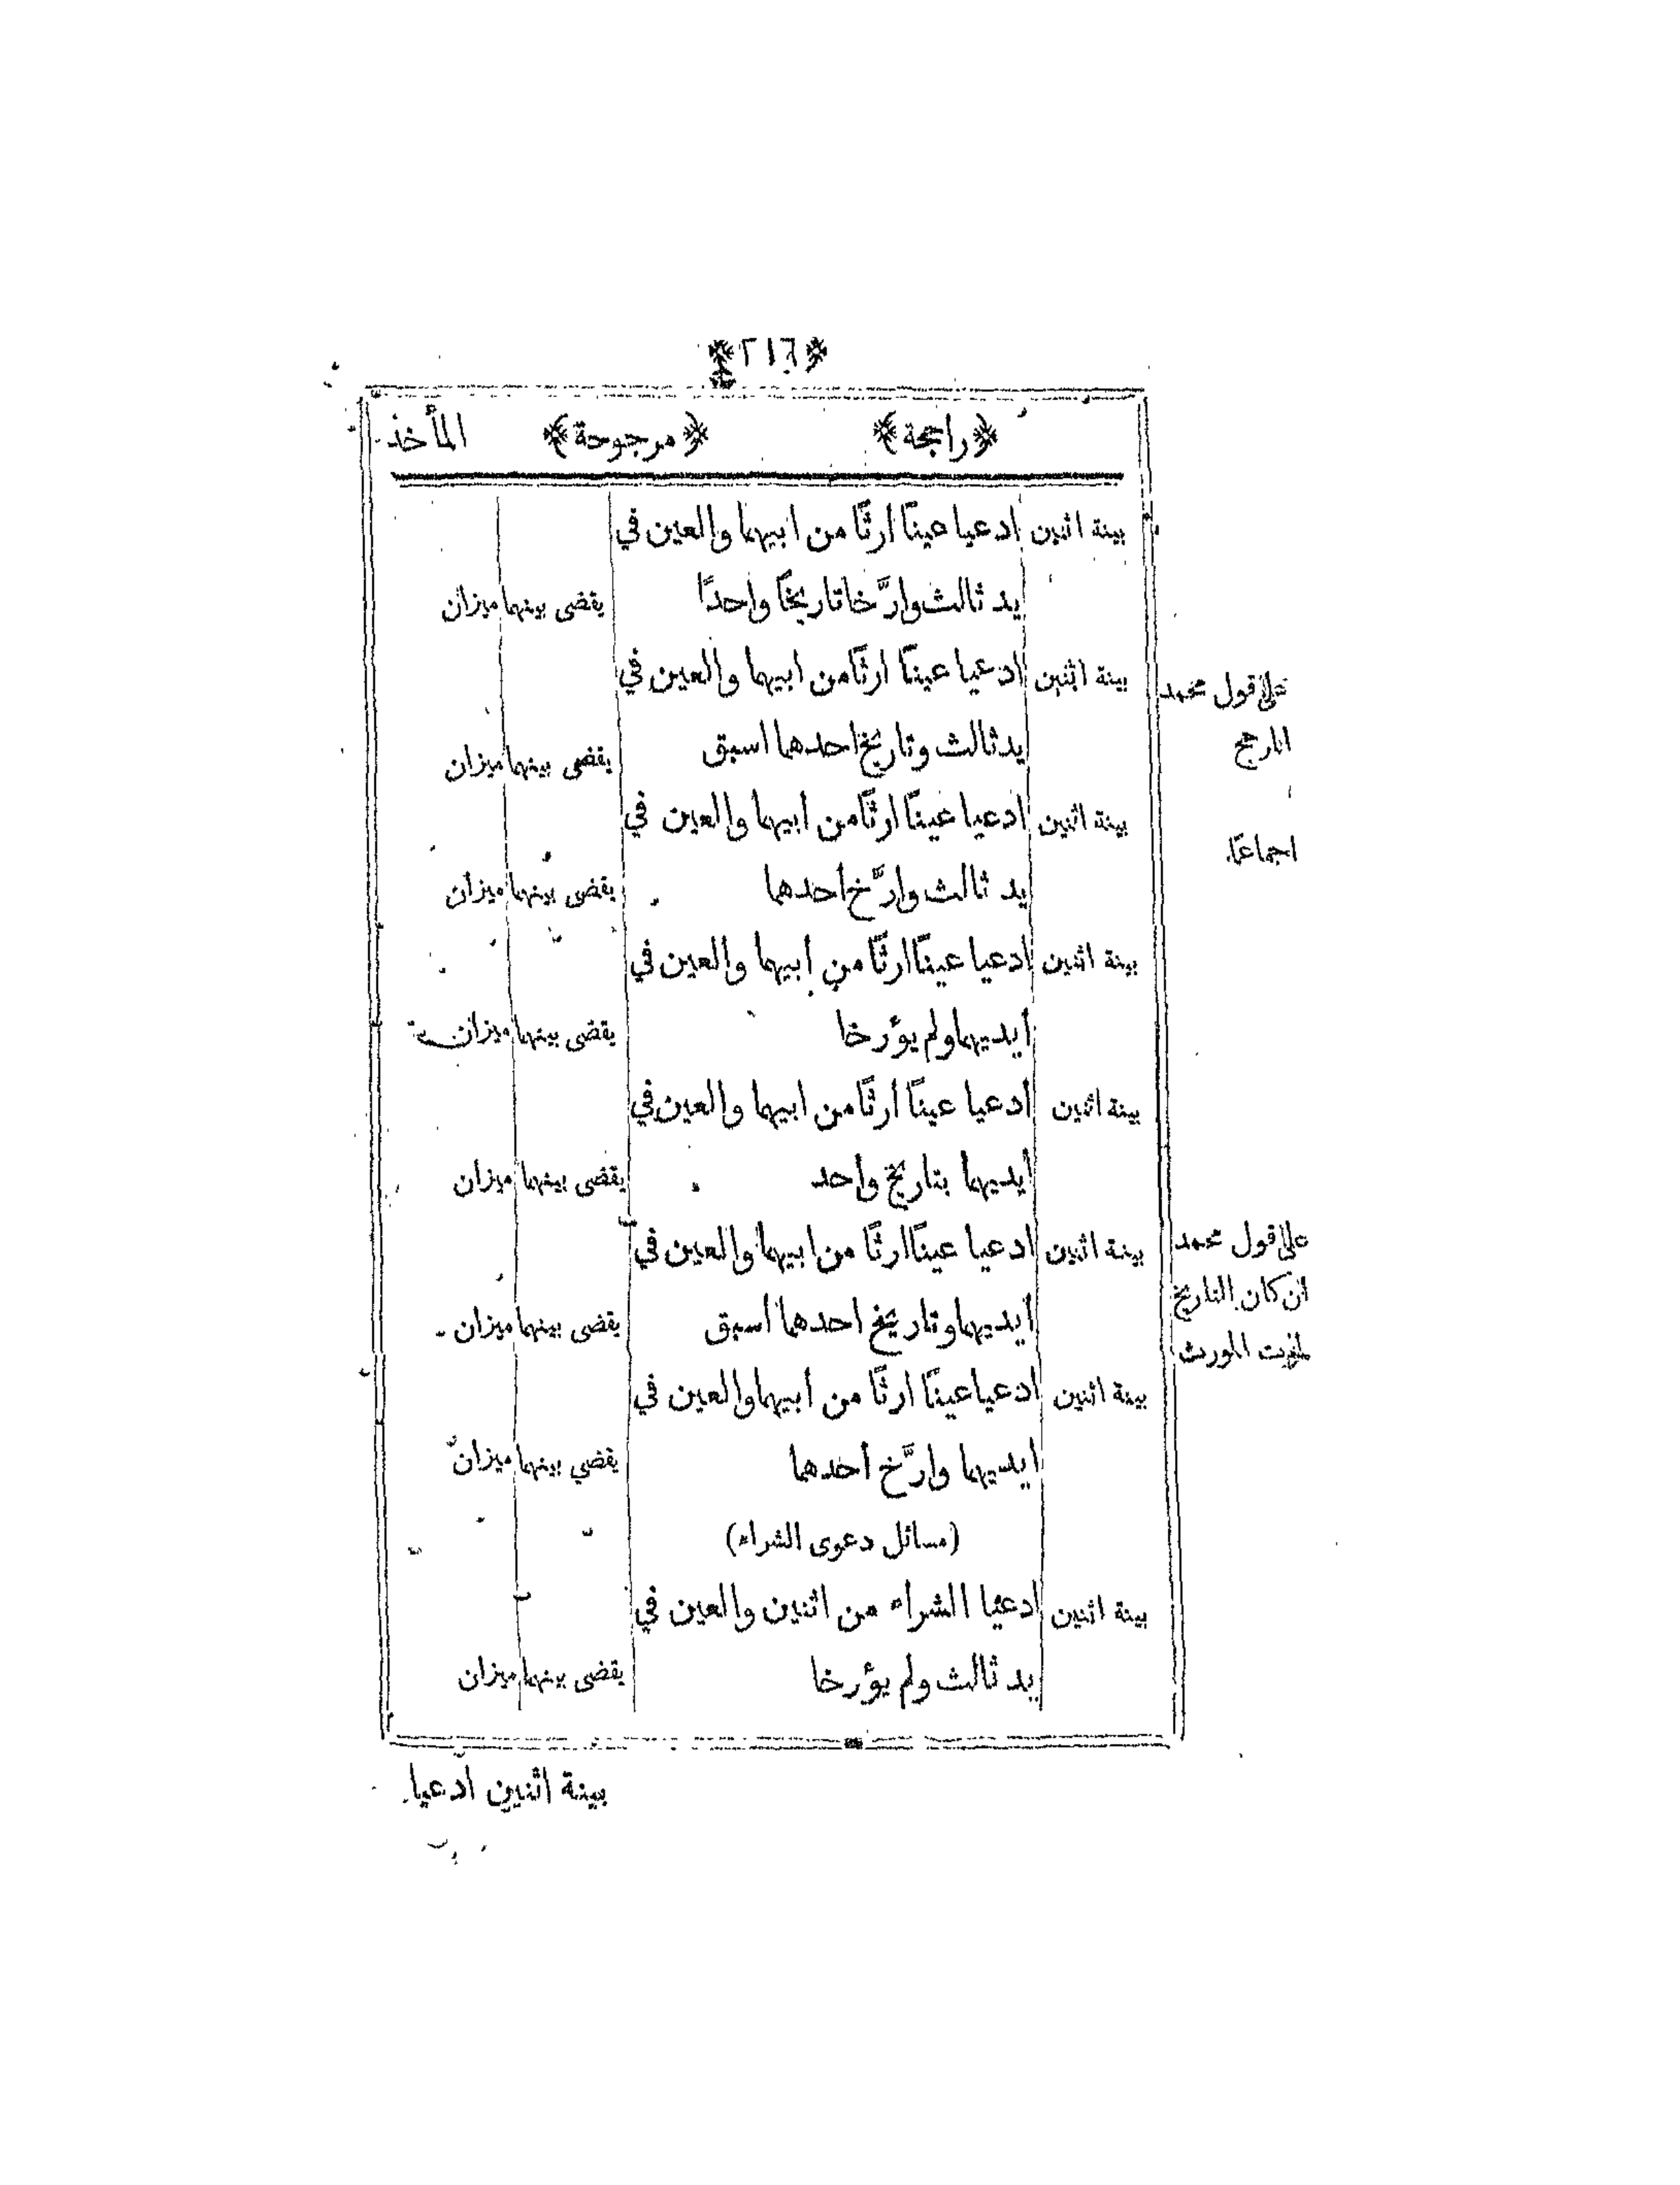 ﴿٢١٦﴾
﴿راجحة﴾ ﴿مرجوحة﴾ المأخذ
بينة اثنين ادعيا عينًا ارثًا من ابيهما والعين في
يد ثالث وارَّخا تاريخًا واحدًا يقضى بينهما ميزان
بينة اثنين ادعيا عينًا ارثًا من ابيهما والعين في
على قول محمد
يد ثالث وتاريخ احدهما اسبق يقضى بينهما ميزان
بينة اثنين ادعيا عينًا ارثًا من ابيهما والعين في
اجماعًا
يد ثالث وارَّخ احدهما يقضى بينهما ميزان
بينة اثنين ادعيا عينًا ارثًا من ابيهما والعين في
ايديهما ولم يؤرخا يقضى بينهما ميزان
بينة اثنين ادعيا عينًا ارثًا من ابيهما والعين في
ايديهما بتاريخ واحد يقضى بينهما ميزان
بينة اثنين ادعيا عينًا ارثًا من ابيهما والعين في
على قول محمد
ان كان التاريخ
ايديهما وتاريخ احدهما اسبق يقضى بينهما ميزان
المورث
بينة اثنين ادعيا عينًا ارثًا من ابيهما والعين في
ايديهما وارَّخ احدهما يقضي بينهما ميزان
(مسائل دعوى الشراء)
بينة اثنين ادعيا الشراء من اثنين والعين في
يد ثالث ولم يؤرخا يقضى بينهما ميزان
بينة اثنين ادّعيا